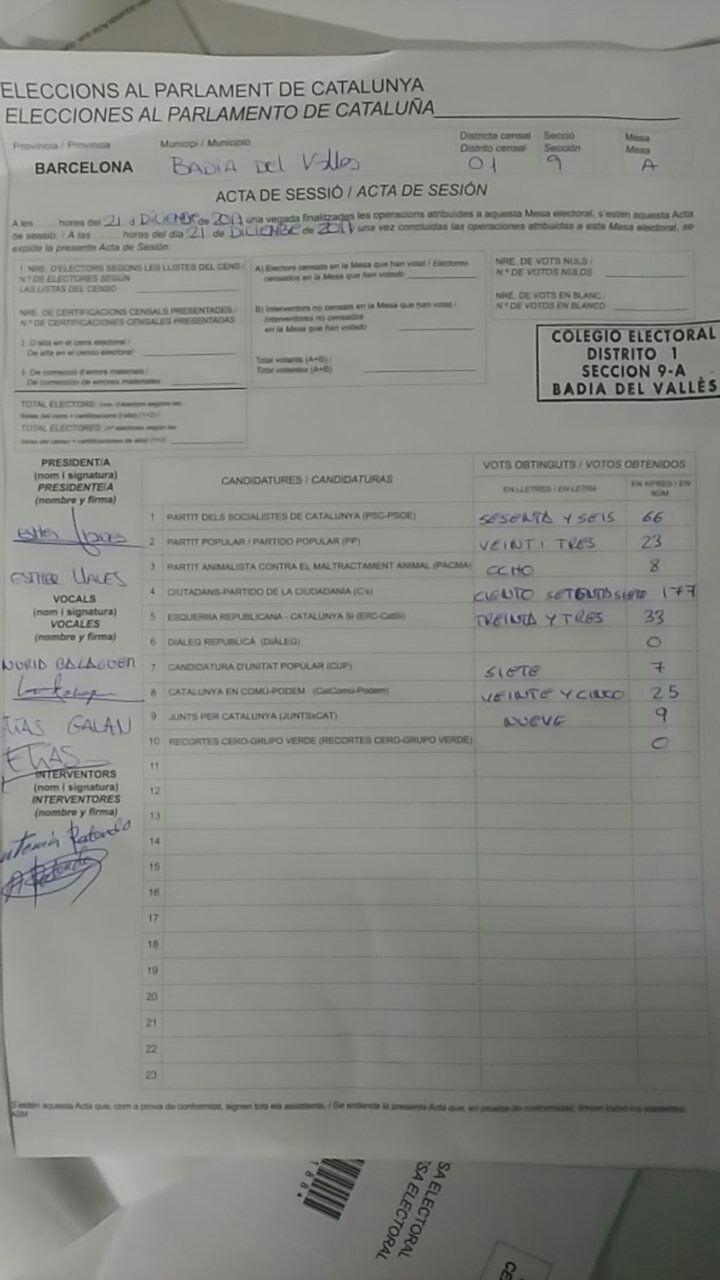 ELECCIONS AL PARLAMENT DE CATALUNYA
ELECCIONES AL PARLAMENTO DE CATALUÑA
Provincia / Provincia
BARCELONA
Municipi / Municipio
BADIA DEL Vallès
Districte censal
Distrito censal
01
Secció
Sección
9
Mesa
Mesa
A
ACTA DE SESSIÓ / ACTA DE SESIÓN
A les hores del 21 d DICIEMBRE de 2017 una vegada finalitzades les operacions atribuïdes a aquesta Mesa electoral, s'estén aquesta Acta
de sessió. / A las horas del día 21 de DICIEMBRE de 2017 una vez concluidas las operaciones atribuidas a esta Mesa electoral, se
expide la presente Acta de Sesión:
1. NRE. D'ELECTORS SEGONS LES LLISTES DEL CENS /
N.º DE ELECTORES SEGÚN
LAS LISTAS DEL CENSO
NRE. DE CERTIFICACIONS CENSALS PRESENTADES /
N.º DE CERTIFICACIONES CENSALES PRESENTADAS
2. D'alta en el cens electoral /
De alta en el censo electoral:
3. De correcció d'errors materials /
De corrección de errores materiales:
TOTAL ELECTORS:
TOTAL ELECTORES:
A) Electors censats en la Mesa que han votat / Electores
censados en la Mesa que han votado
B) Interventors no censats en la Mesa que han votat /
Interventores no censados
en la Mesa que han votado
Total votants (A+B) /
Total votantes (A+B)
NRE. DE VOTS NULS /
N.º DE VOTOS NULOS
NRE. DE VOTS EN BLANC /
N.º DE VOTOS EN BLANCO
COLEGIO ELECTORAL
DISTRITO 1
SECCION 9-A
BADIA DEL VALLÈS
PRESIDENT/A
(nom i signatura)
PRESIDENTE/A
(nombre y firma)
ESTHER
VOCALS
(nom i signatura)
VOCALES
(nombre y firma)
NURIA BALAGUER
GALAN
ELIAS
INTERVENTORS
(nom i signatura)
INTERVENTORES
(nombre y firma)
CANDIDATURES / CANDIDATURAS
VOTS OBTINGUTS / VOTOS OBTENIDOS
EN LLETRES / EN LETRA
EN XIFRES / EN NÚM
1 PARTIT DELS SOCIALISTES DE CATALUNYA (PSC-PSOE) SESENTA Y SEIS 66
2 PARTIT POPULAR / PARTIDO POPULAR (PP) VEINTI TRES 23
3 PARTIT ANIMALISTA CONTRA EL MALTRACTAMENT ANIMAL (PACMA) OCHO 8
4 CIUTADANS-PARTIDO DE LA CIUDADANÍA (C's) CIENTO SETENTASIETE 177
5 ESQUERRA REPUBLICANA - CATALUNYA SÍ (ERC-CatSí) TREINTA Y TRES 33
6 DIÀLEG REPUBLICÀ (DIÀLEG) 0
7 CANDIDATURA D'UNITAT POPULAR (CUP) SIETE 7
8 CATALUNYA EN COMÚ-PODEM (CatComú-Podem) VEINTE Y CINCO 25
9 JUNTS PER CATALUNYA (JUNTSxCAT) NUEVE 9
10 RECORTES CERO-GRUPO VERDE (RECORTES CERO-GRUPO VERDE) 0
11
12
13
14
15
16
17
18
19
20
21
22
23
S'estén aquesta Acta que, com a prova de conformitat, signen tots els assistents. / Se extiende la presente Acta que, en prueba de conformidad, firman todos los asistentes.
SA ELECTORAL
SA ELECTORAL